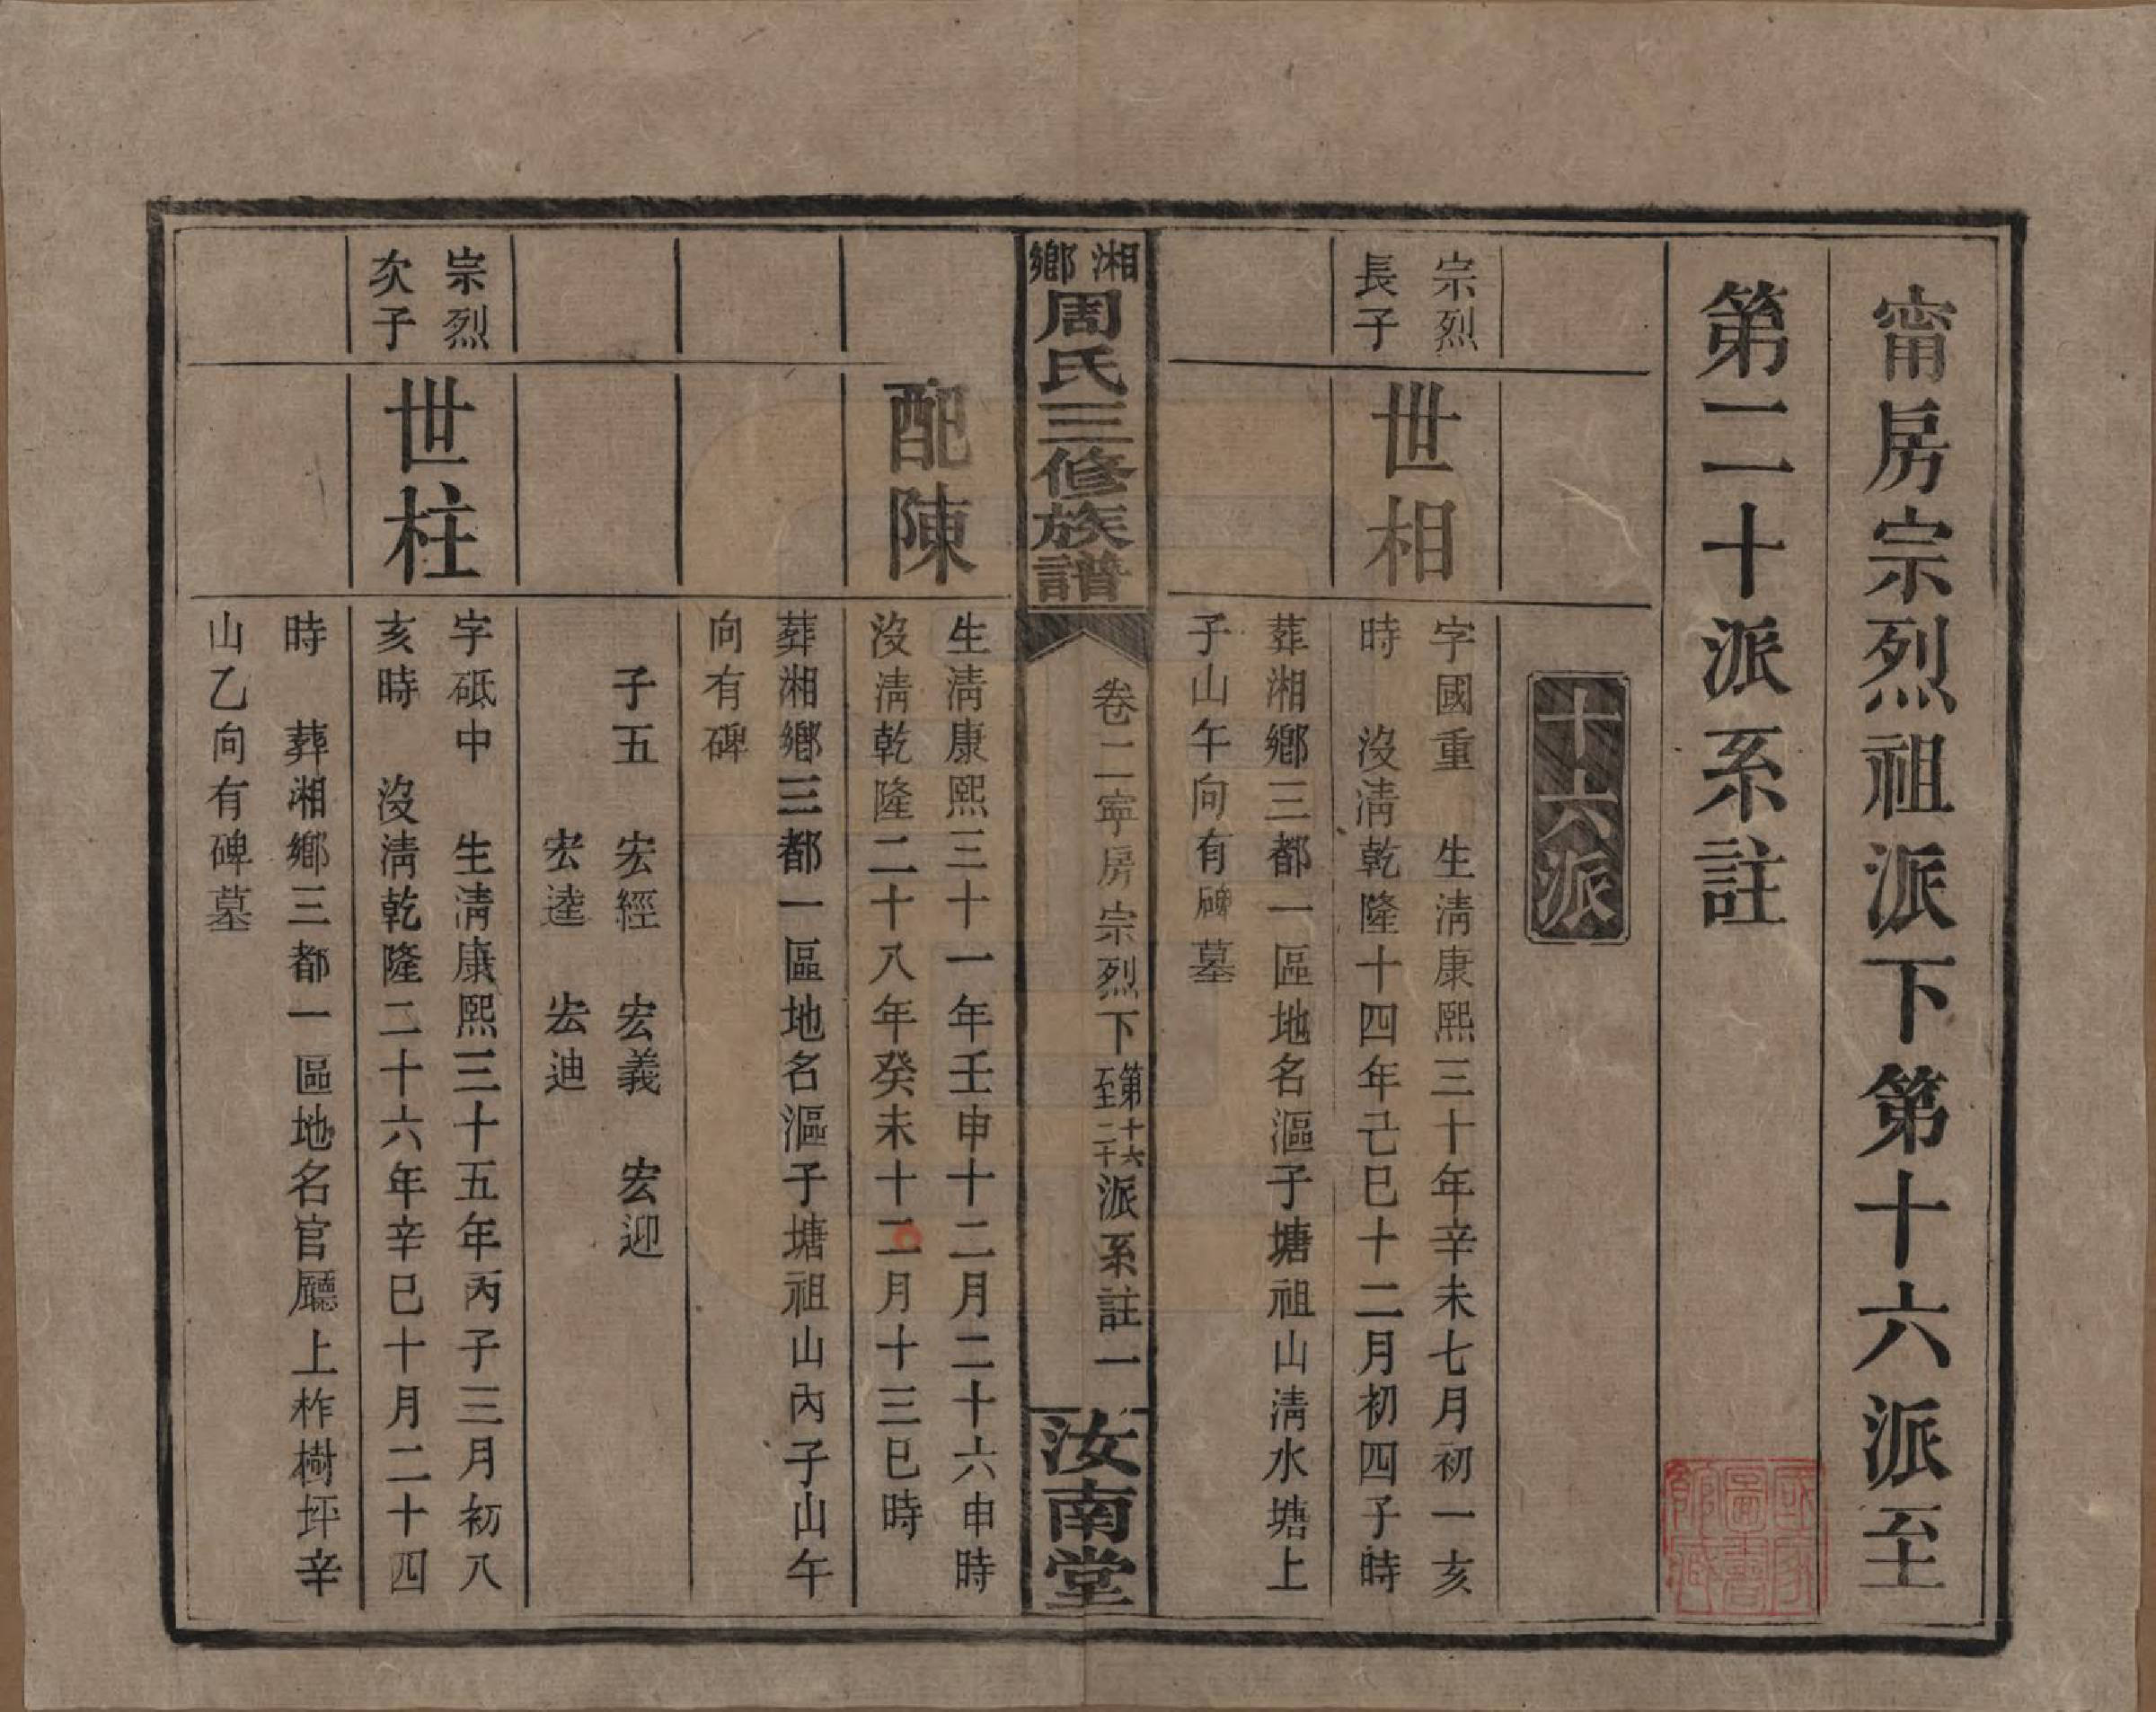 甯房宗烈祖派下第十六派至
第二十派系註
十六派
宗烈
長子
世相
字國重　生清康熙三十年辛未七月初一亥
時　沒清乾隆十四年己巳十二月初四子時
葬湘鄉三都一區地名漚子塘祖山清水塘上
子山午向有碑墓
湘鄉
周氏三修族譜
卷二寧房宗烈下第十六至二十派系註一
汝南堂
配陳
生清康熙三十一年壬申十二月二十六申時
沒清乾隆二十八年癸未十二月十三巳時
葬湘鄉三都一區地名漚子塘祖山內子山午
向有碑
子五　宏經　宏義　宏迎
宏逵　宏迪
宗烈
次子
世柱
字砥中　生清康熙三十五年丙子三月初八
亥時　沒清乾隆二十六年辛巳十月二十四
時　葬湘鄉三都一區地名官廳上柞樹坪辛
山乙向有碑墓
國家圖書館藏